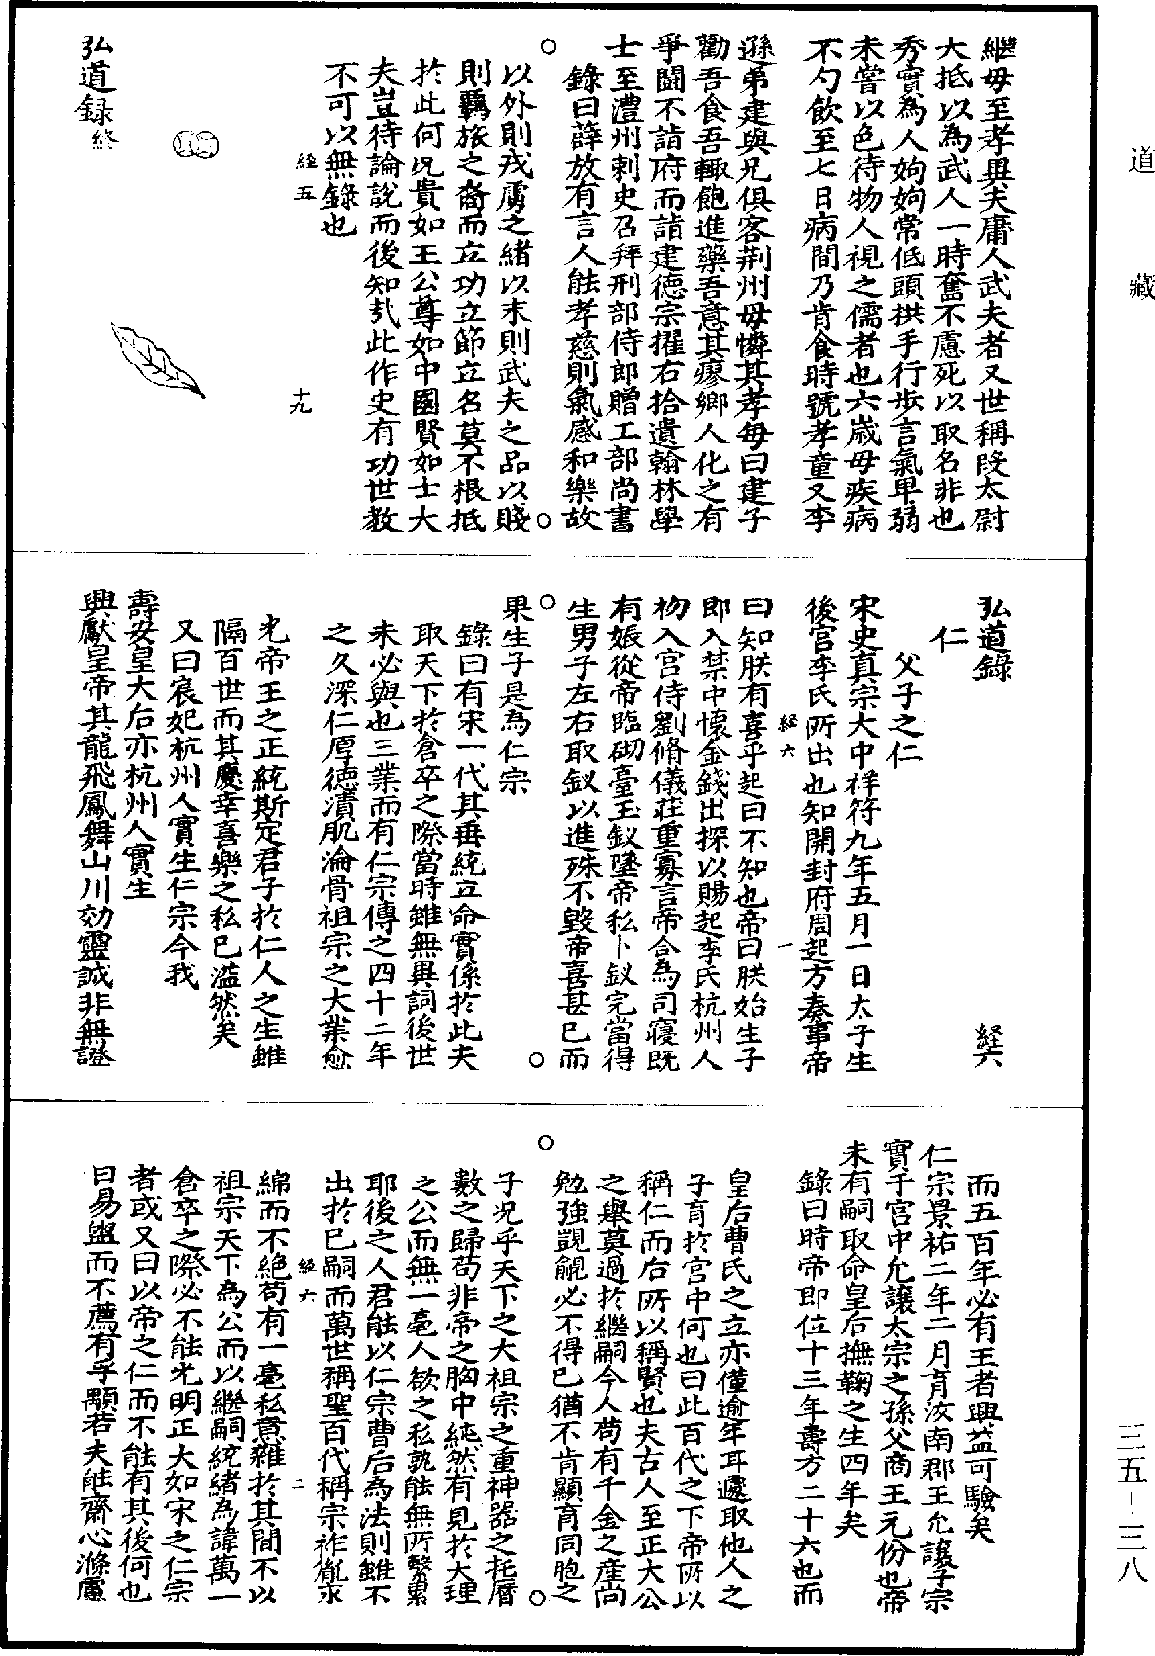 道藏
繼母至孝異矣庸人武夫者又世稱段太尉
大抵以為武人一時奮不慮死以取名非也
秀實為人姁姁常低頭拱手行步言氣卑弱
未嘗以色待物人視之儒者也六歲母疾病
不勺飲至七日病間乃肯食時號孝童又李
遜弟建與兄俱客荊州母憐其孝每曰建子
勸吾食吾輒飽進藥吾意其瘳鄉人化之有
爭鬪不詣府而詣建德宗擢右拾遺翰林學
士至澧州刺史召拜刑部侍郎贈工部尚書
錄曰薛放有言人能孝慈則氣感和樂故
以外則戎虜之緒以末則武夫之品以賤
則羈旅之裔而立功立節立名莫不根抵
於此何況貴如王公尊如中國賢如士大
夫豈待論說而後知哉此作史有功世教
不可以無錄也
經五　十九
弘道録終
弘道錄　經六
仁
父子之仁
宋史真宗大中祥符九年五月一日太子生
後宮李氏所出也知開封府周起方奏事帝
曰知朕有喜乎起曰不知也帝曰朕始生子
即入禁中懷金錢出探以賜起李氏杭州人
初入宮侍劉脩儀莊重寡言帝合為司寢既
有娠從帝臨砌臺玉釵墜帝私卜釵完當得
生男子左右取釵以進殊不毀帝喜甚已而
果生子是為仁宗
錄曰有宋一代其垂統立命實係於此夫
取天下於倉卒之際當時雖無異詞後世
未必與也三業而有仁宗傳之四十二年
之久深仁厚德漬肌淪骨祖宗之大業愈
經六　一
光帝王之正統斯定君子於仁人之生雖
隔百世而其慶幸喜樂之私已溢然矣
又曰宸妃杭州人實生仁宗今我
壽安皇大后亦杭州人實生
興獻皇帝其龍飛鳳舞山川効靈誠非無證
而五百年必有王者興益可驗矣
仁宗景祐二年二月育汝南郡王允讓子宗
實于宮中允讓太宗之孫父商王元份也帝
未有嗣取命皇后撫鞠之生四年矣
錄曰時帝即位十三年壽方二十六也而
皇后曹氏之立亦僅逾年耳遽取他人之
子育於宮中何也曰此百代之下帝所以
稱仁而后所以稱賢也夫古人至正大公
之舉莫過於繼嗣今人苟有千金之產尚
勉強覬覦必不得已猶不肯顯育同胞之
子況乎天下之大祖宗之重神器之托曆
數之歸苟非帝之胸中純然有見於大理
之公而無一毫人欲之私孰能無所繫累
耶後之人君能以仁宗曹后為法則雖不
出於己嗣而萬世稱聖百代稱宗祚胤永
經六　二
綿而不絕苟有一毫私意雜於其間不以
祖宗天下為公而以繼嗣統緒為諱萬一
倉卒之際必不能光明正大如宋之仁宗
者或又曰以帝之仁而不能有其後何也
曰易盥而不薦有孚顒若夫能齋心滌慮
三五—三八